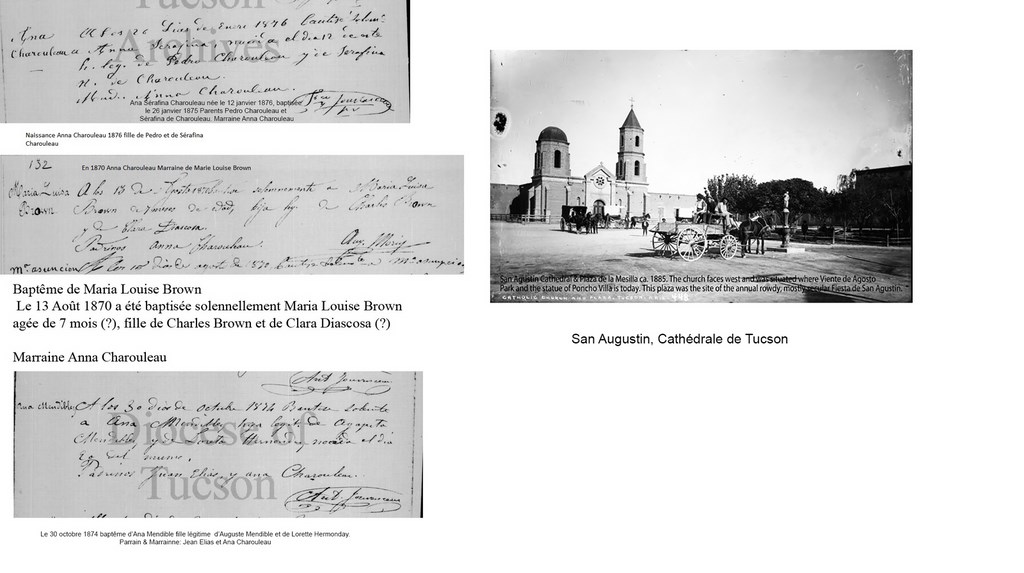 Tucson
Archives
Ana
Charouleau
A los 26 dias de Enero 1876 Bautisé Solem.
a Anna Serafina nacida el dia 12 de este
h. leg. de Pedro Charouleau y de Serafina
N. de Charouleau.
Mad. Anna Charouleau.
Ana Sérafina Charouleau née le 12 janvier 1876, baptisée
le 26 janvier 1875 Parents Pedro Charouleau et
Sérafina de Charouleau. Marraine Anna Charouleau
Naissance Anna Charouleau 1876 fille de Pedro et de Sérafina
Charouleau
132
En 1870 Anna Charouleau Marraine de Marie Louise Brown
Maria Luisa
Brown
A los 13 de Agosto 1870 solemnemente a Maria Luisa
Brown de 7 meses de edad, hija leg. de Charles Brown
y de Clara Diascosa.
Padrinos anna Charouleau.
Ma. asuncion
Baptême de Maria Louise Brown
Le 13 Août 1870 a été baptisée solennellement Maria Louise Brown
agée de 7 mois (?), fille de Charles Brown et de Clara Diascosa (?)
Marraine Anna Charouleau
Diocese of
Tucson
Ana Mendibles
A los 30 dias de octubre 1874 Bautise solemte
a Ana Mendibles hija legit. de Agapito
Mendibles y de Loreta Hernandez nacida el dia
20 del mismo.
Padrinos Juan Elias y ana Charouleau.
Ant. Jouvenceau
Le 30 octobre 1874 baptême d'Ana Mendible fille légitime d'Auguste Mendible et de Lorette Hermonday.
Parrain & Marrainne: Jean Elias et Ana Charouleau
San Agustin Cathedral & Plaza de la Mesilla ca. 1885. The church faces west and was situated where Viente de Agosto
Park and the statue of Poncho Villa is today. This plaza was the site of the annual rowdy, mostly secular Fiesta de San Agustin.
CATHOLIC CHURCH AND PLAZA, TUCSON, ARIZ. 448
San Augustin, Cathédrale de Tucson